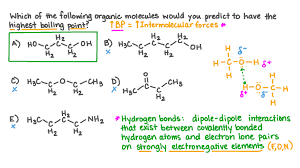 Which of the following organic molecules would you predict to have the
highest boiling point? ↑BP = ↑Intermolecular forces *
A) HO C H₂ H₂ C C H₂ OH B) H₃C H₂ C C H₂ H₂ C OH
C) H₃C C H₂ O C H₂ CH₃ D) H₃C O C C H₂ CH₃
x x
E) H₃C H₂ C C H₂ NH₂
x
* Hydrogen bonds: dipole-dipole interactions
that exist between covalently bonded
hydrogen atoms and electron lone pairs
on strongly electronegative elements (F,O,N)